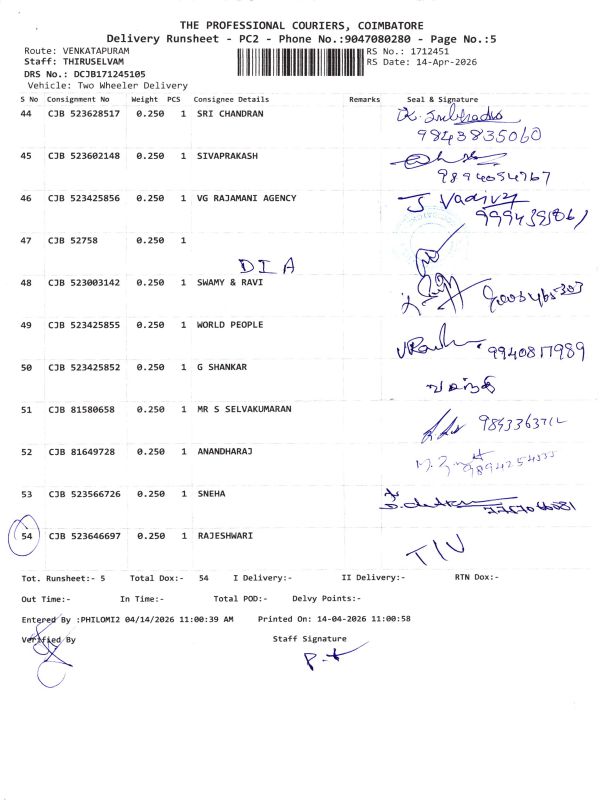 THE PROFESSIONAL COURIERS, COIMBATORE
Delivery Runsheet - PC2 - Phone No.:9047080280 - Page No.:5
Route: VENKATAPURAM RS No.: 1712451
Staff: THIRUSELVAM RS Date: 14-Apr-2026
DRS No.: DCJB171245105
Vehicle: Two Wheeler Delivery
S No Consignment No Weight PCS Consignee Details Remarks Seal & Signature
44 CJB 523628517 0.250 1 SRI CHANDRAN
9843835060
45 CJB 523602148 0.250 1 SIVAPRAKASH
9894054767
46 CJB 523425856 0.250 1 VG RAJAMANI AGENCY J Vadivel
47 CJB 52758 0.250 1
DIA
48 CJB 523003142 0.250 1 SWAMY & RAVI
49 CJB 523425855 0.250 1 WORLD PEOPLE
9940817989
50 CJB 523425852 0.250 1 G SHANKAR
51 CJB 81580658 0.250 1 MR S SELVAKUMARAN
52 CJB 81649728 0.250 1 ANANDHARAJ
53 CJB 523566726 0.250 1 SNEHA
54 CJB 523646697 0.250 1 RAJESHWARI
Tot. Runsheet:- 5 Total Dox:- 54 I Delivery:- II Delivery:- RTN Dox:-
Out Time:- In Time:- Total POD:- Delvy Points:-
Entered By :PHILOMI2 04/14/2026 11:00:39 AM Printed On: 14-04-2026 11:00:58
Verified By Staff Signature